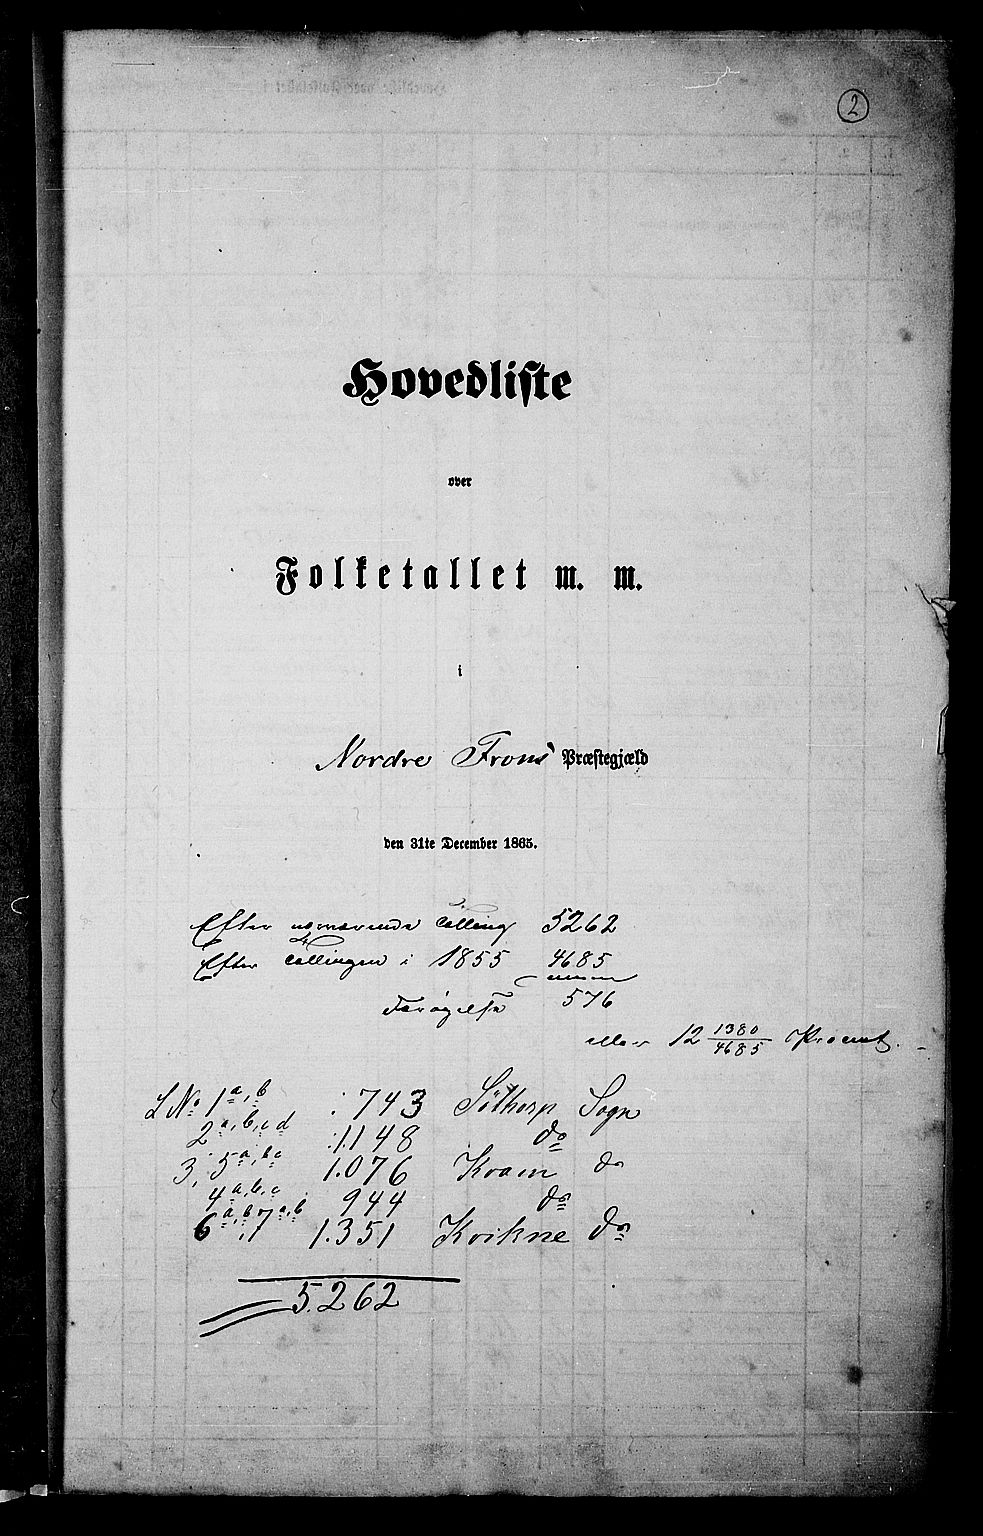 2
Hovedliste
over
Folketallet m. m.
i
Nordre Frons Præstegjæld
den 31te December 1865.
Efter nærværende Tælling 5262
Efter Tællingen i 1855 4685
Forøgelse 576
eller 12 1380/4685 Procent.
L No 1 a, b : 743 Södhorp Sogn
2 a, b, c d : 1.148 do
3, 5 a, b c 1.076 Kvam do
4 a, b, c 944 do
6 a, b, 7 a, b 1.351 Kvikne do
5.262